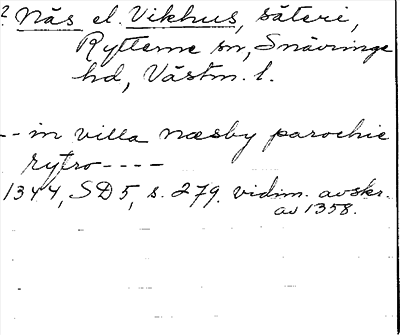 ? Näs el. Vikhus, säteri,
Rytterne sn, Snävringe
hd, Västm. l.
-- in villa næsby parochie
rytro ----
1344, SD 5, s. 279. vidim. avskr.
av 1358.